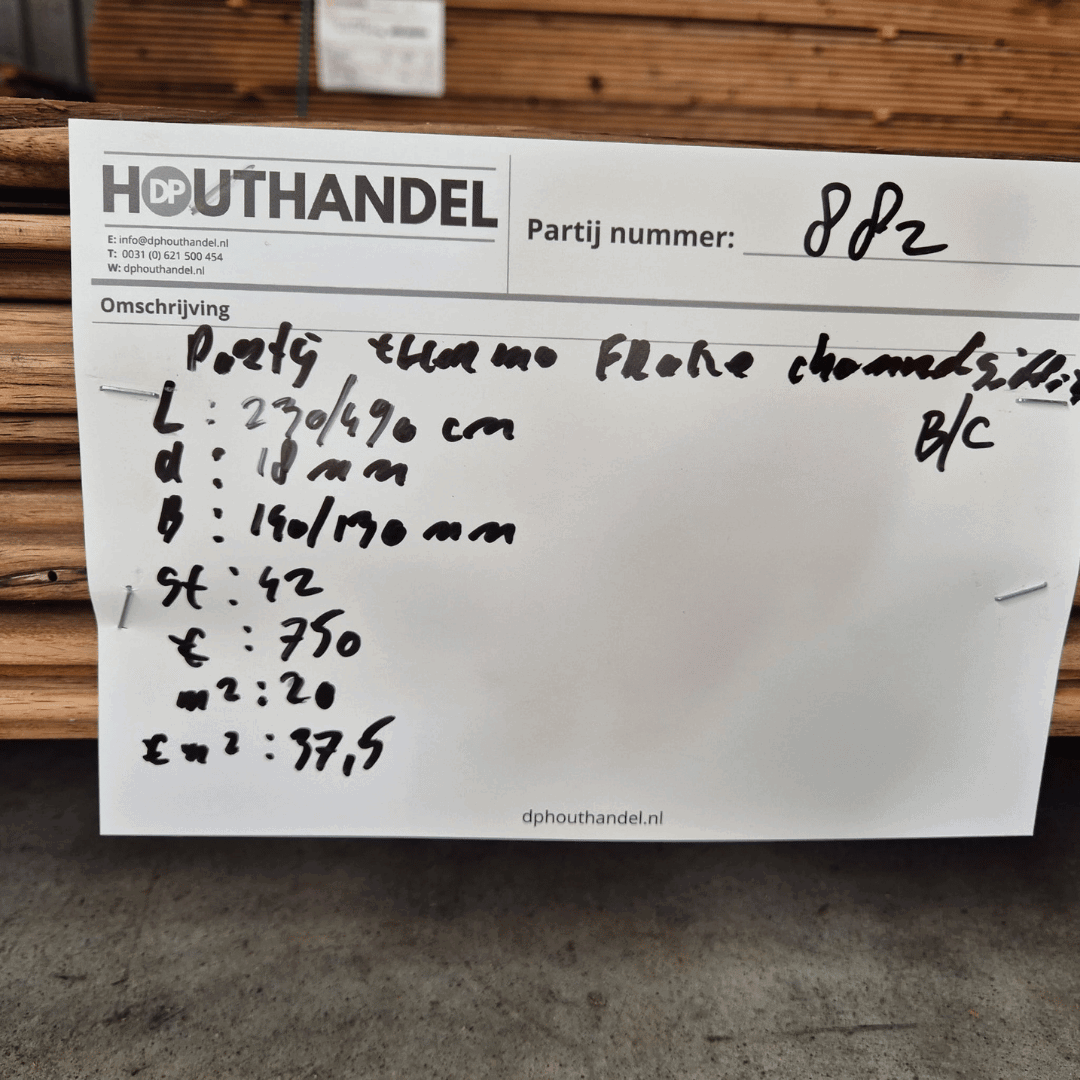 HOUTHANDEL
DP
E: info@dphouthandel.nl
T: 0031 (0) 621 500 454
W: dphouthandel.nl
Partij nummer: 882
Omschrijving
Partij thermo FRake
B/C
L : 230/490 cm
d : 18 mm
B : 140/190 mm
st : 42
€ : 750
m² : 20
€ m² : 37,5
dphouthandel.nl